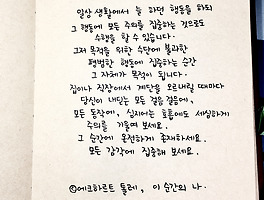 일상 생활에서 늘 하던 행동을 하되
그 행동에 모든 주의를 집중하는 것으로도
수행을 할 수 있습니다.
그저 목적을 위한 수단에 불과한
평범한 행동에 집중하는 순간
그 자체가 목적이 됩니다.
집이나 직장에서 계단을 오르내릴 때마다
당신이 내딛는 모든 걸음 걸음에,
모든 동작에, 심지어는 호흡에도 세심하게
주의를 기울여 보세요.
그 순간에 온전하게 존재하세요.
모든 감각에 집중해 보세요.
ⓒ에크하르트 톨레, 이 순간의 나.